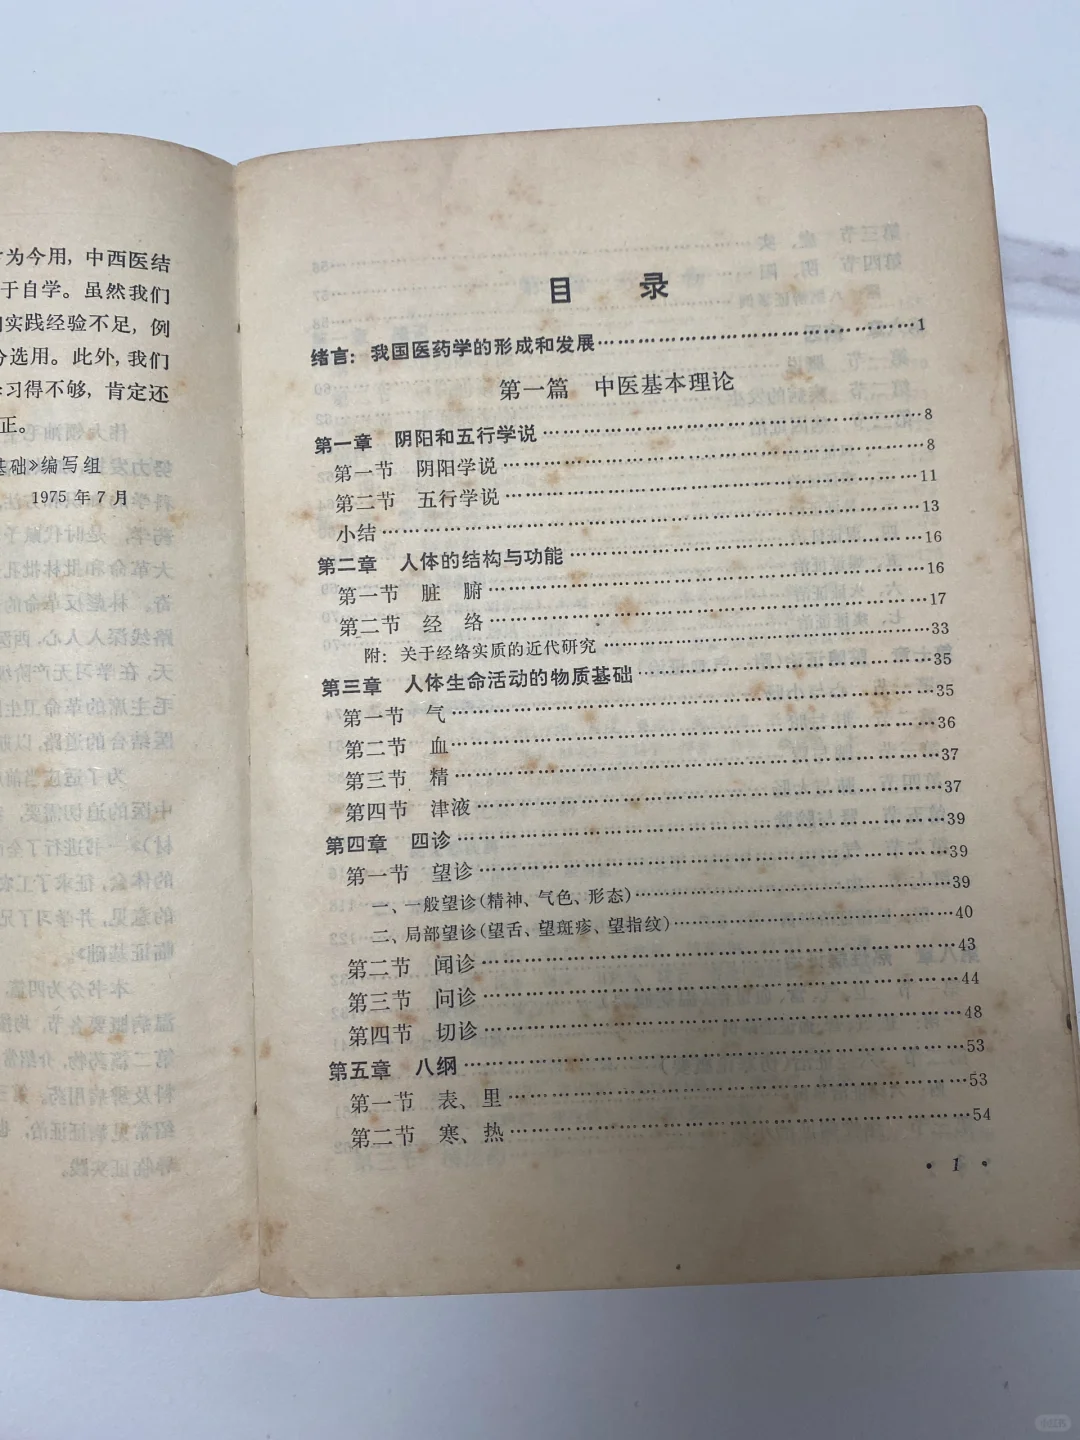 为今用，中西医结
于自学。虽然我们
实践经验不足，例
分选用。此外，我们
习得不够，肯定还
正。
基础》编写组
1975年7月
目 录
绪言：我国医药学的形成和发展……1
第一篇 中医基本理论
第一章 阴阳和五行学说……8
第一节 阴阳学说……8
第二节 五行学说……11
小结……13
第二章 人体的结构与功能……16
第一节 脏 腑……16
第二节 经 络……17
附：关于经络实质的近代研究……33
第三章 人体生命活动的物质基础……35
第一节 气……35
第二节 血……36
第三节 精……37
第四节 津液……37
第四章 四诊……39
第一节 望诊……39
一、一般望诊（精神、气色、形态）……39
二、局部望诊（望舌、望斑疹、望指纹）……40
第二节 闻诊……43
第三节 问诊……44
第四节 切诊……48
第五章 八纲……53
第一节 表、里……53
第二节 寒、热……54
· 1 ·